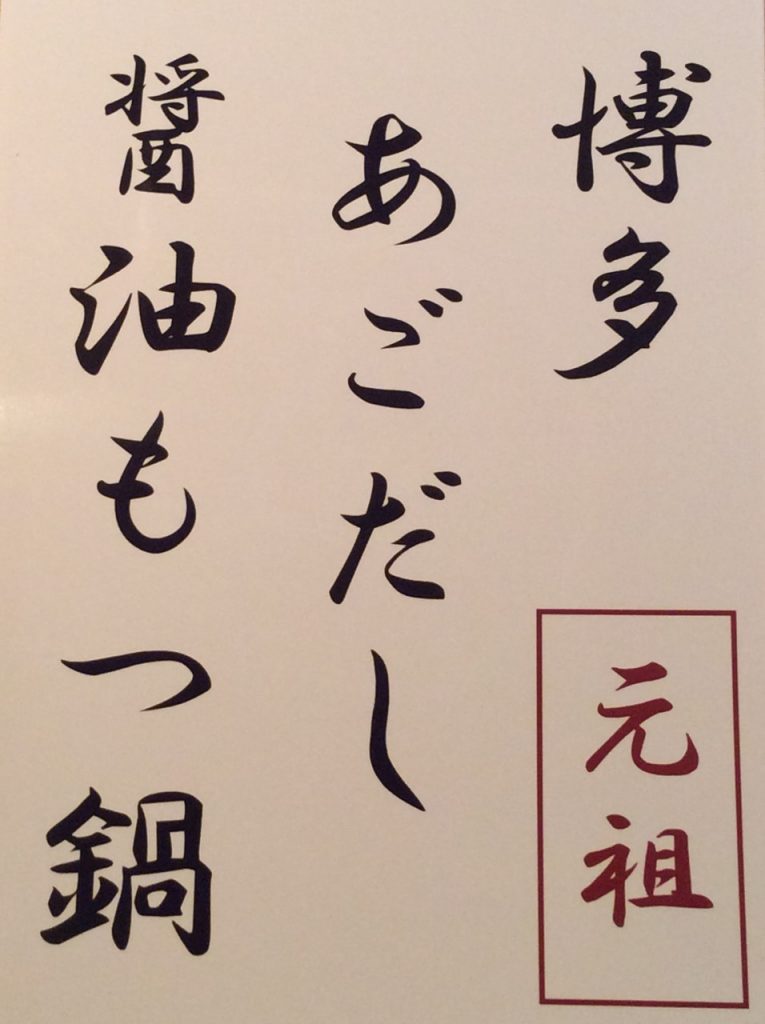 博多
元祖
あごだし
醤油もつ鍋